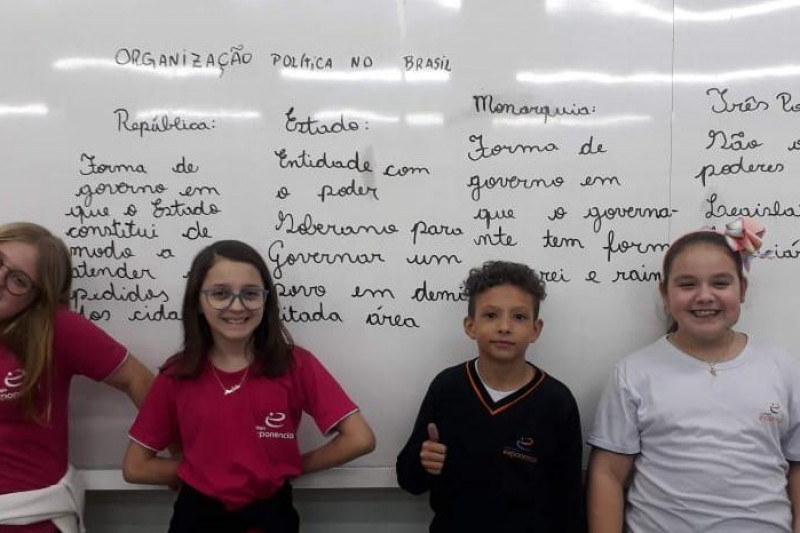 ORGANIZAÇÃO POLÍTICA NO BRASIL
República:
Forma de
governo em
que o Estado
constitui de
modo a
atender
pedidos
Estado:
Entidade com
o poder
Soberano para
Governar um
povo em
área
Monarquia:
Forma de
governo em
que o governa-
nte tem
rei e
Três
Não
poderes
exponência